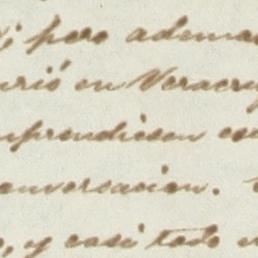 pero ademas
urió en Veracru
nprendiesen es
conversacion.
, y casi todo